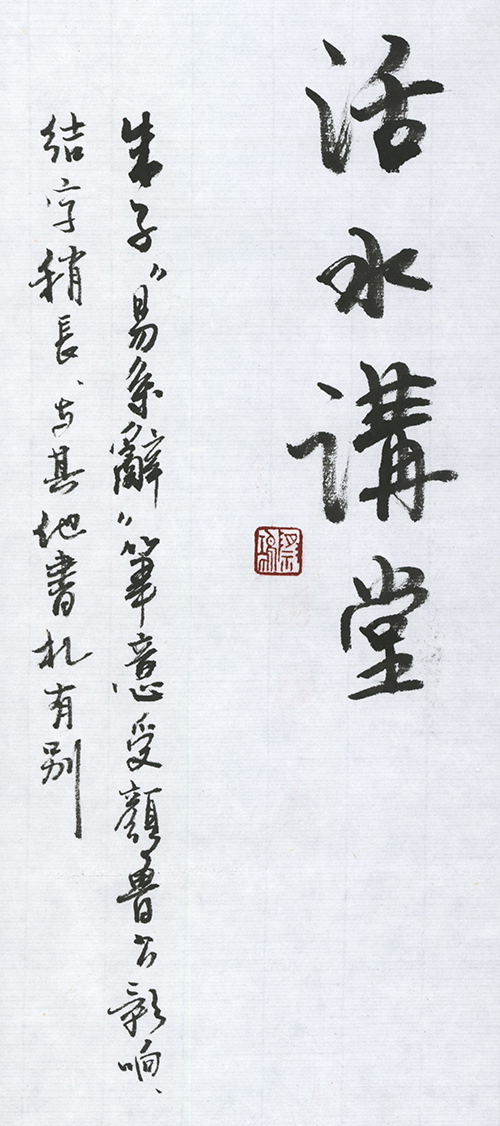 活水講堂
朱子“易系辭”筆意受顏魯公影响、
结字稍長、与其他書札有别